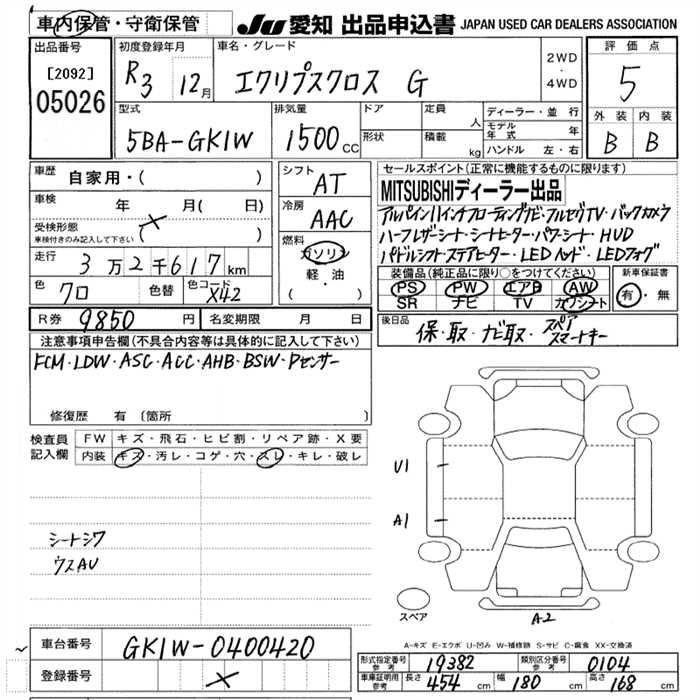 車内保管・守衛保管 JU 愛知 出品申込書 JAPAN USED CAR DEALERS ASSOCIATION
出品番号 [2092] 05026
初度登録年月 R3 12月
車名・グレード エクリプスクロス G
2WD・4WD
評価点 5
外装 B 内装 B
型式 5BA-GK1W
排気量 1500CC
ドア 形状
定員 人 積載 kg
ディーラー・並行
モデル年式 年
ハンドル 左・右
車歴 自家用・( )
車検 年 月( 日)
受検形態 車検付きのみ記入して下さい ( × )
走行 3万2千617km
色 クロ 色替 色コード X42
シフト AT
冷房 AAC
燃料 ガソリン 軽・油 ( )
セールスポイント(正常に機能するものに限ります)
MITSUBISHIディーラー出品
アルパイン11インチフローティングナビ・フルセグTV・バックカメラ
ハーフレザーシート・シートヒーター・パワーシート・HUD
パドルシフト・ステアヒーター・LEDヘッド・LEDフォグ
装備品(純正品に限り○をつけてください) 新車保証書
PS PW エアB AW 有・無
SR ナビ TV カワシート
R券 9850円 名変期限 月 日
後日品 保・取・ナビ取・スペアスマートキー
注意事項申告欄(不具合内容等は具体的に記入して下さい)
FCM・LDW・ASC・ACC・AHB・BSW・Pセンサー
修復歴 有 〔箇所 〕
検査員記入欄 FW キズ・飛石・ヒビ割・リペア跡・X要
内装 キズ・汚レ・コゲ・穴・スレ・キレ・破レ
シートシワ
ウスAU
U1
A1
スペア
A-2
A-キズ E-エクボ U-凹み W-補修跡 S-サビ C-腐食 XX-交換済
車台番号 GK1W-0400420
登録番号 ×
形式指定番号 参考 19382 類別区分番号 参考 0104
車庫証明用 参考 長さ 454cm 幅 180cm 高さ 168cm